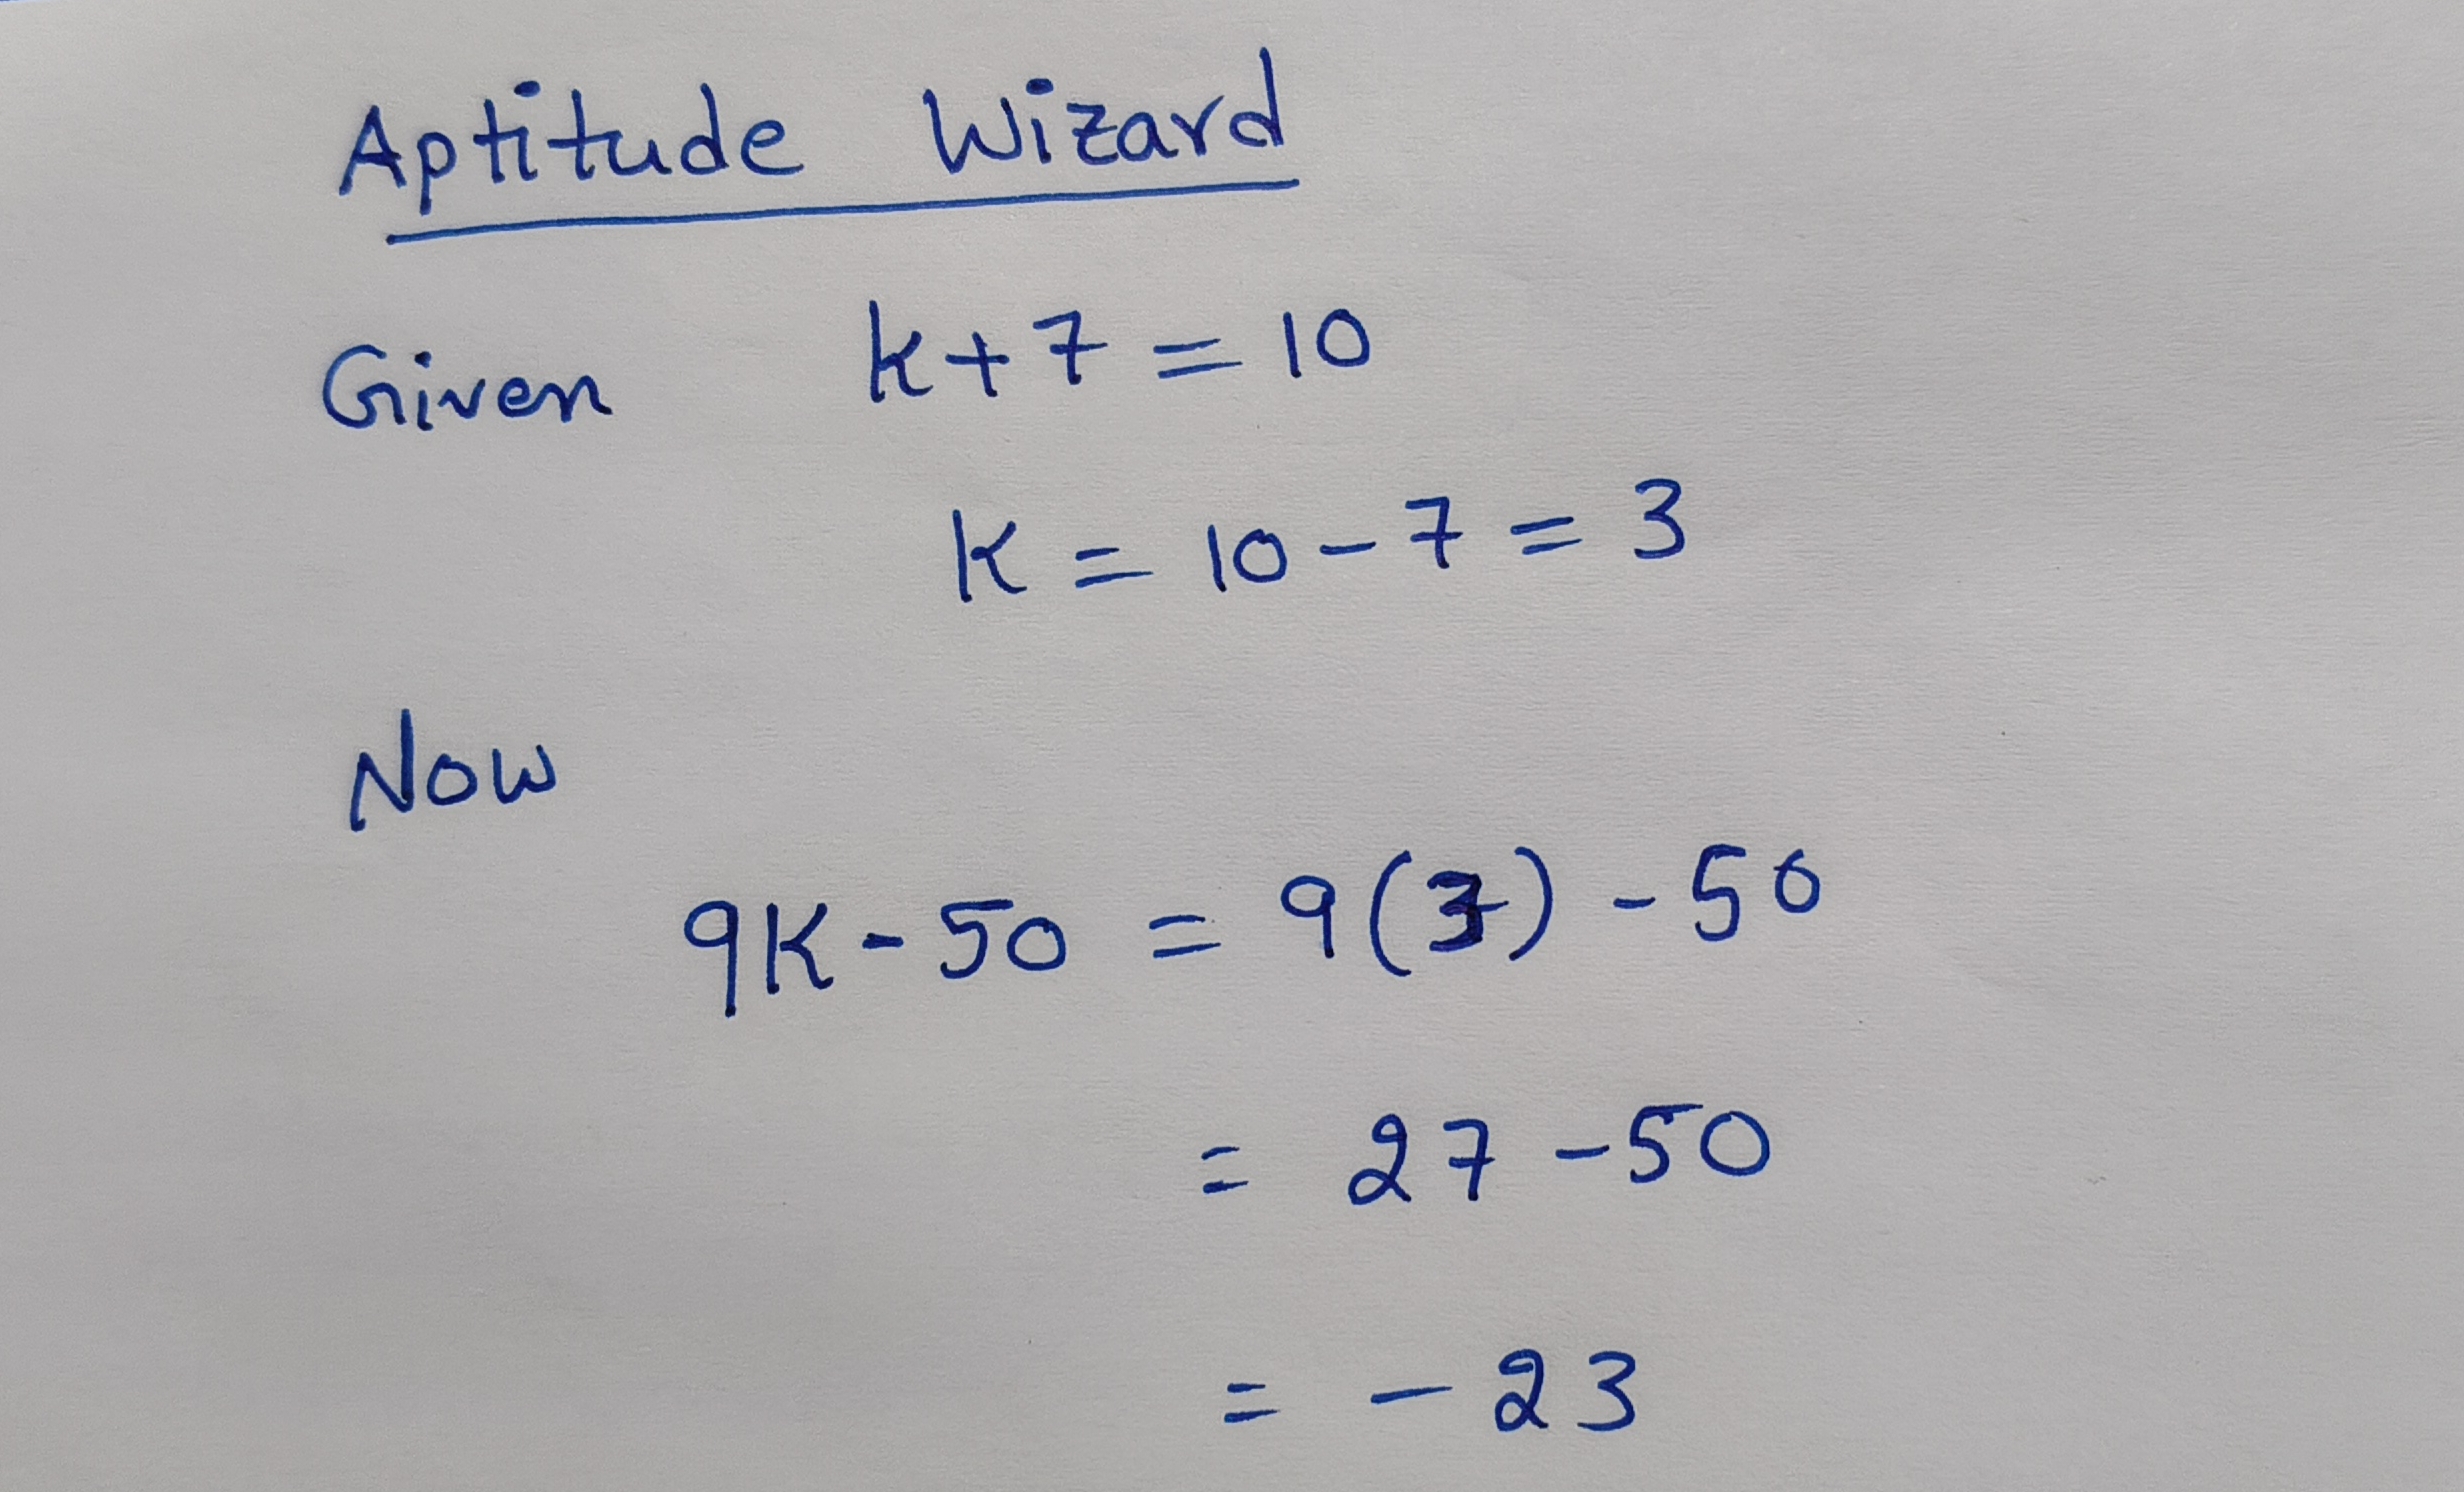 Aptitude Wizard
Given k+7=10
K=10-7=3
Now
9K-50=9(3)-50
=27-50
=-23